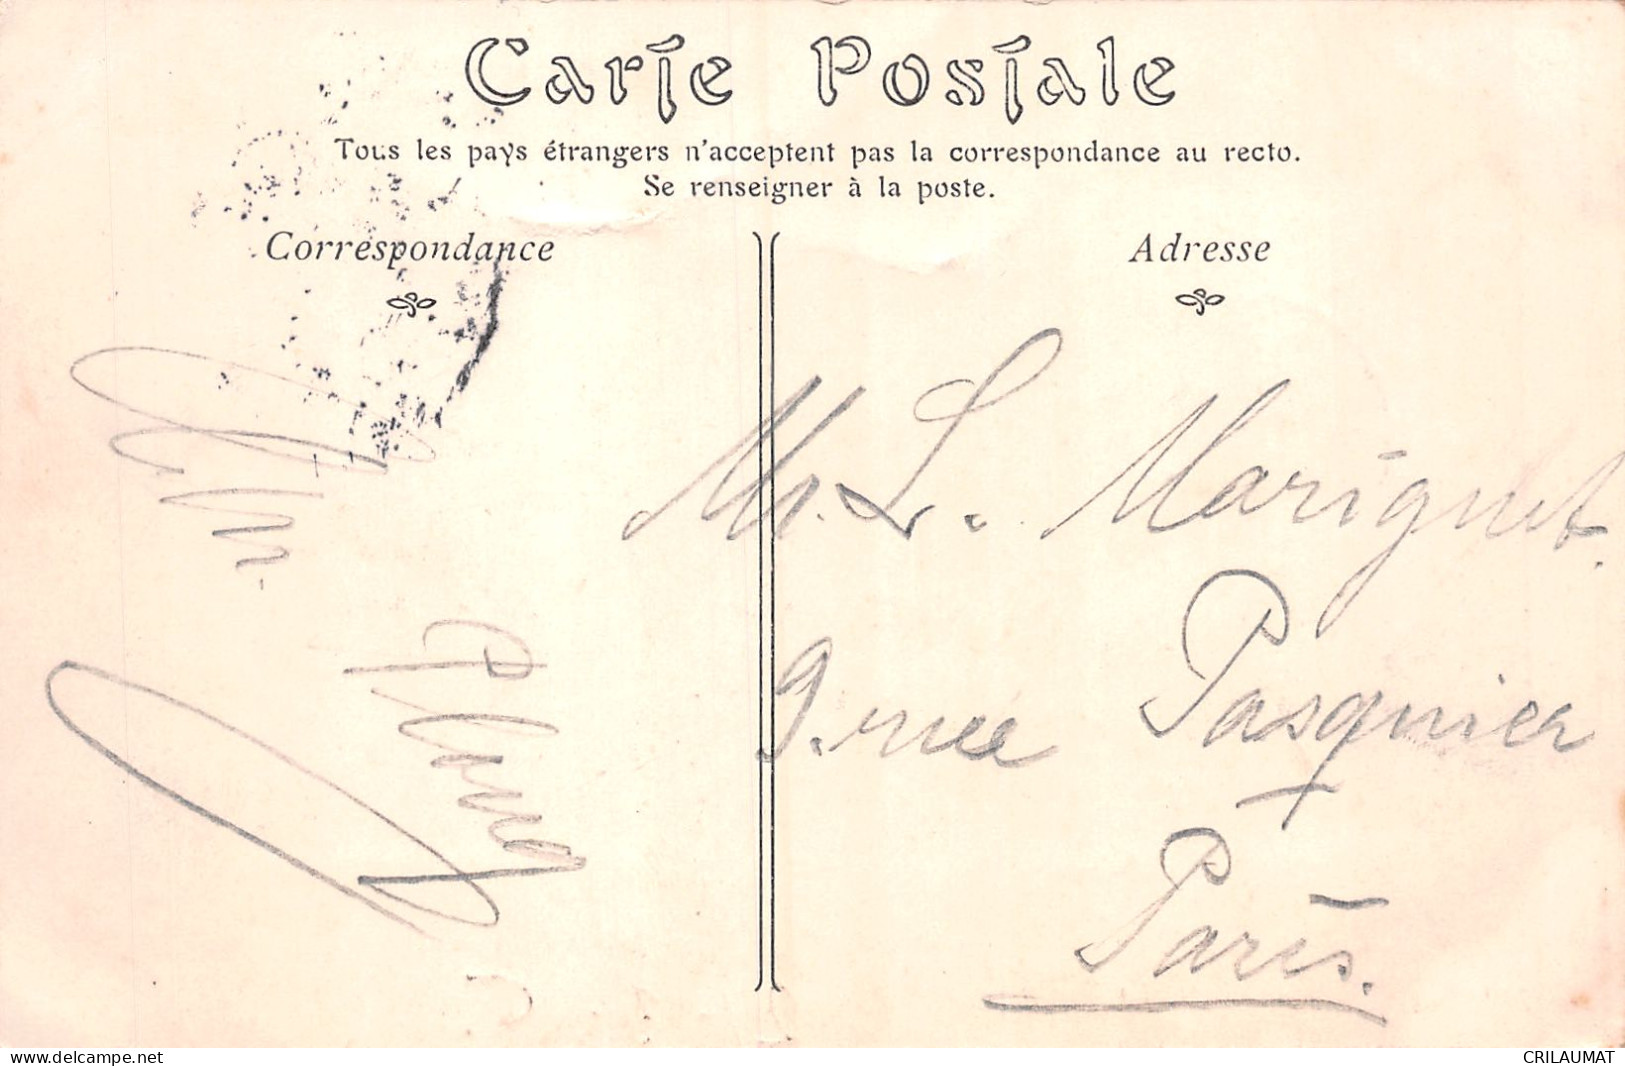 Carte Postale
Tous les pays étrangers n'acceptent pas la correspondance au recto.
Se renseigner à la poste.
Correspondance
Adresse
Mr. L. Marignet.
9. rue Pasquier
Paris.
delcampe.net
CRILAUMAT